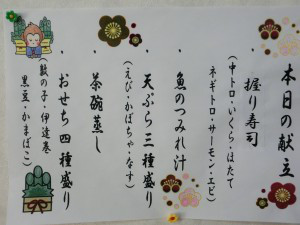 本日の献立
・握り寿司
(中トロ・いくら・ほたて
ネギトロ・サーモン・エビ)
・魚のつみれ汁
・天ぷら三種盛り
(えび・かぼちゃ・なす)
・茶碗蒸し
・おせち四種盛り
(数の子・伊達巻
黒豆・かまぼこ)